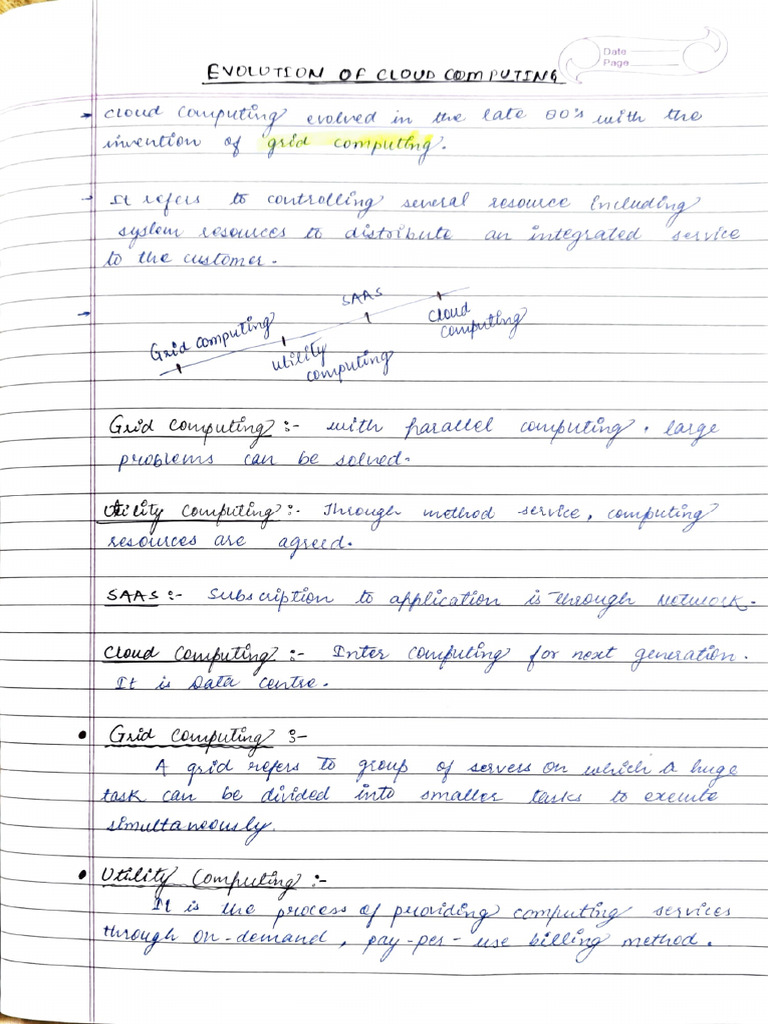 Date
Page
EVOLUTION OF CLOUD COMPUTING
→ Cloud computing evolved in the late 80's with the
invention of grid computing.
→ It refers to controlling several resource including
system resources to distribute an integrated service
to the customer.
→
SAAS
Cloud
computing
Grid computing
Utility
computing
Grid computing :- with parallel computing. large
problems can be solved.
Utility computing :- Through method service, computing
resources are agreed.
SAAS :- Subscription to application is through network.
Cloud computing :- Inter computing for next generation.
It is Data centre.
• Grid computing :-
A grid refers to group of servers on which a huge
task can be divided into smaller tasks to execute
simultaneously.
• Utility Computing :-
It is the process of providing computing services
through on-demand, pay-per-use billing method.